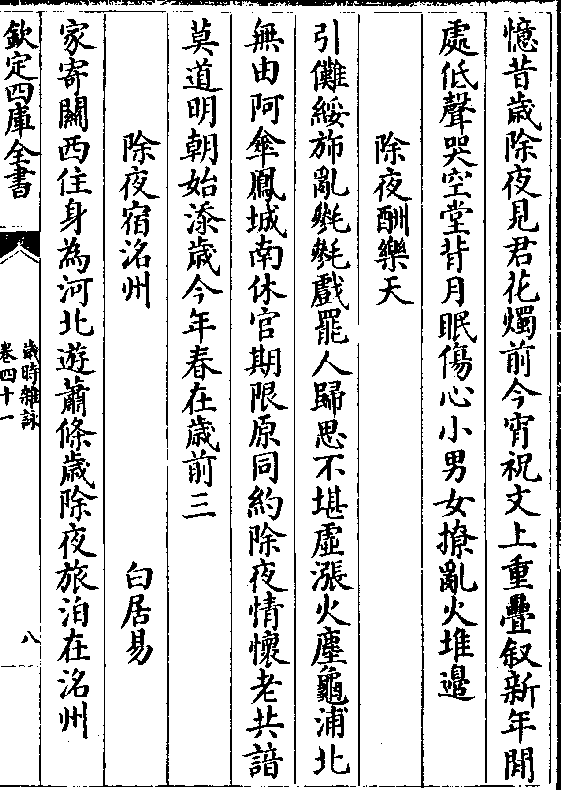 憶昔歲除夜見君花燭前今宵祝文上重疊叙新年閒
處低聲哭空堂背月眠傷心小男女撩亂火堆邉
除夜酬樂天
引儺綏斾亂毿毿戲罷人歸思不堪虛漲火塵龜浦北
無由阿傘鳳城南休官期限原同約除夜情懷老共諳
莫道明朝始添歲今年春在歲前三
除夜宿洺州 白居易
家寄關西住身為河北遊蕭條歲除夜旅泊在洺州
欽定四庫全書
歲時雜詠
卷四十一
八